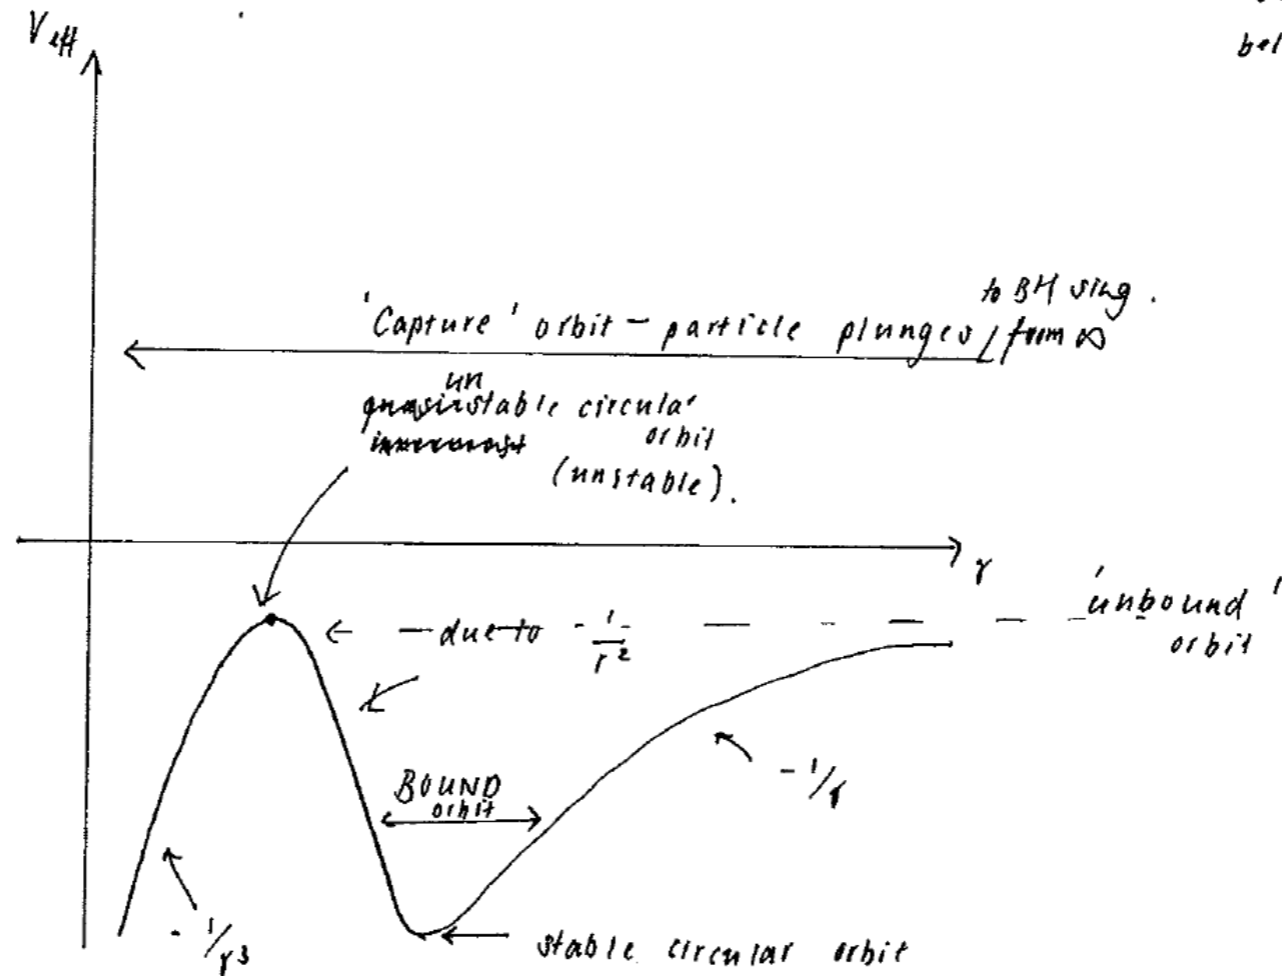 bel
V eff
to BH sing.
'Capture' orbit – particle plunges / from ∞
un
stable circular
orbit
(unstable).
r
'unbound'
orbit
← — due to - 1/r²
BOUND
orbit
- 1/r
- 1/r³
stable circular orbit